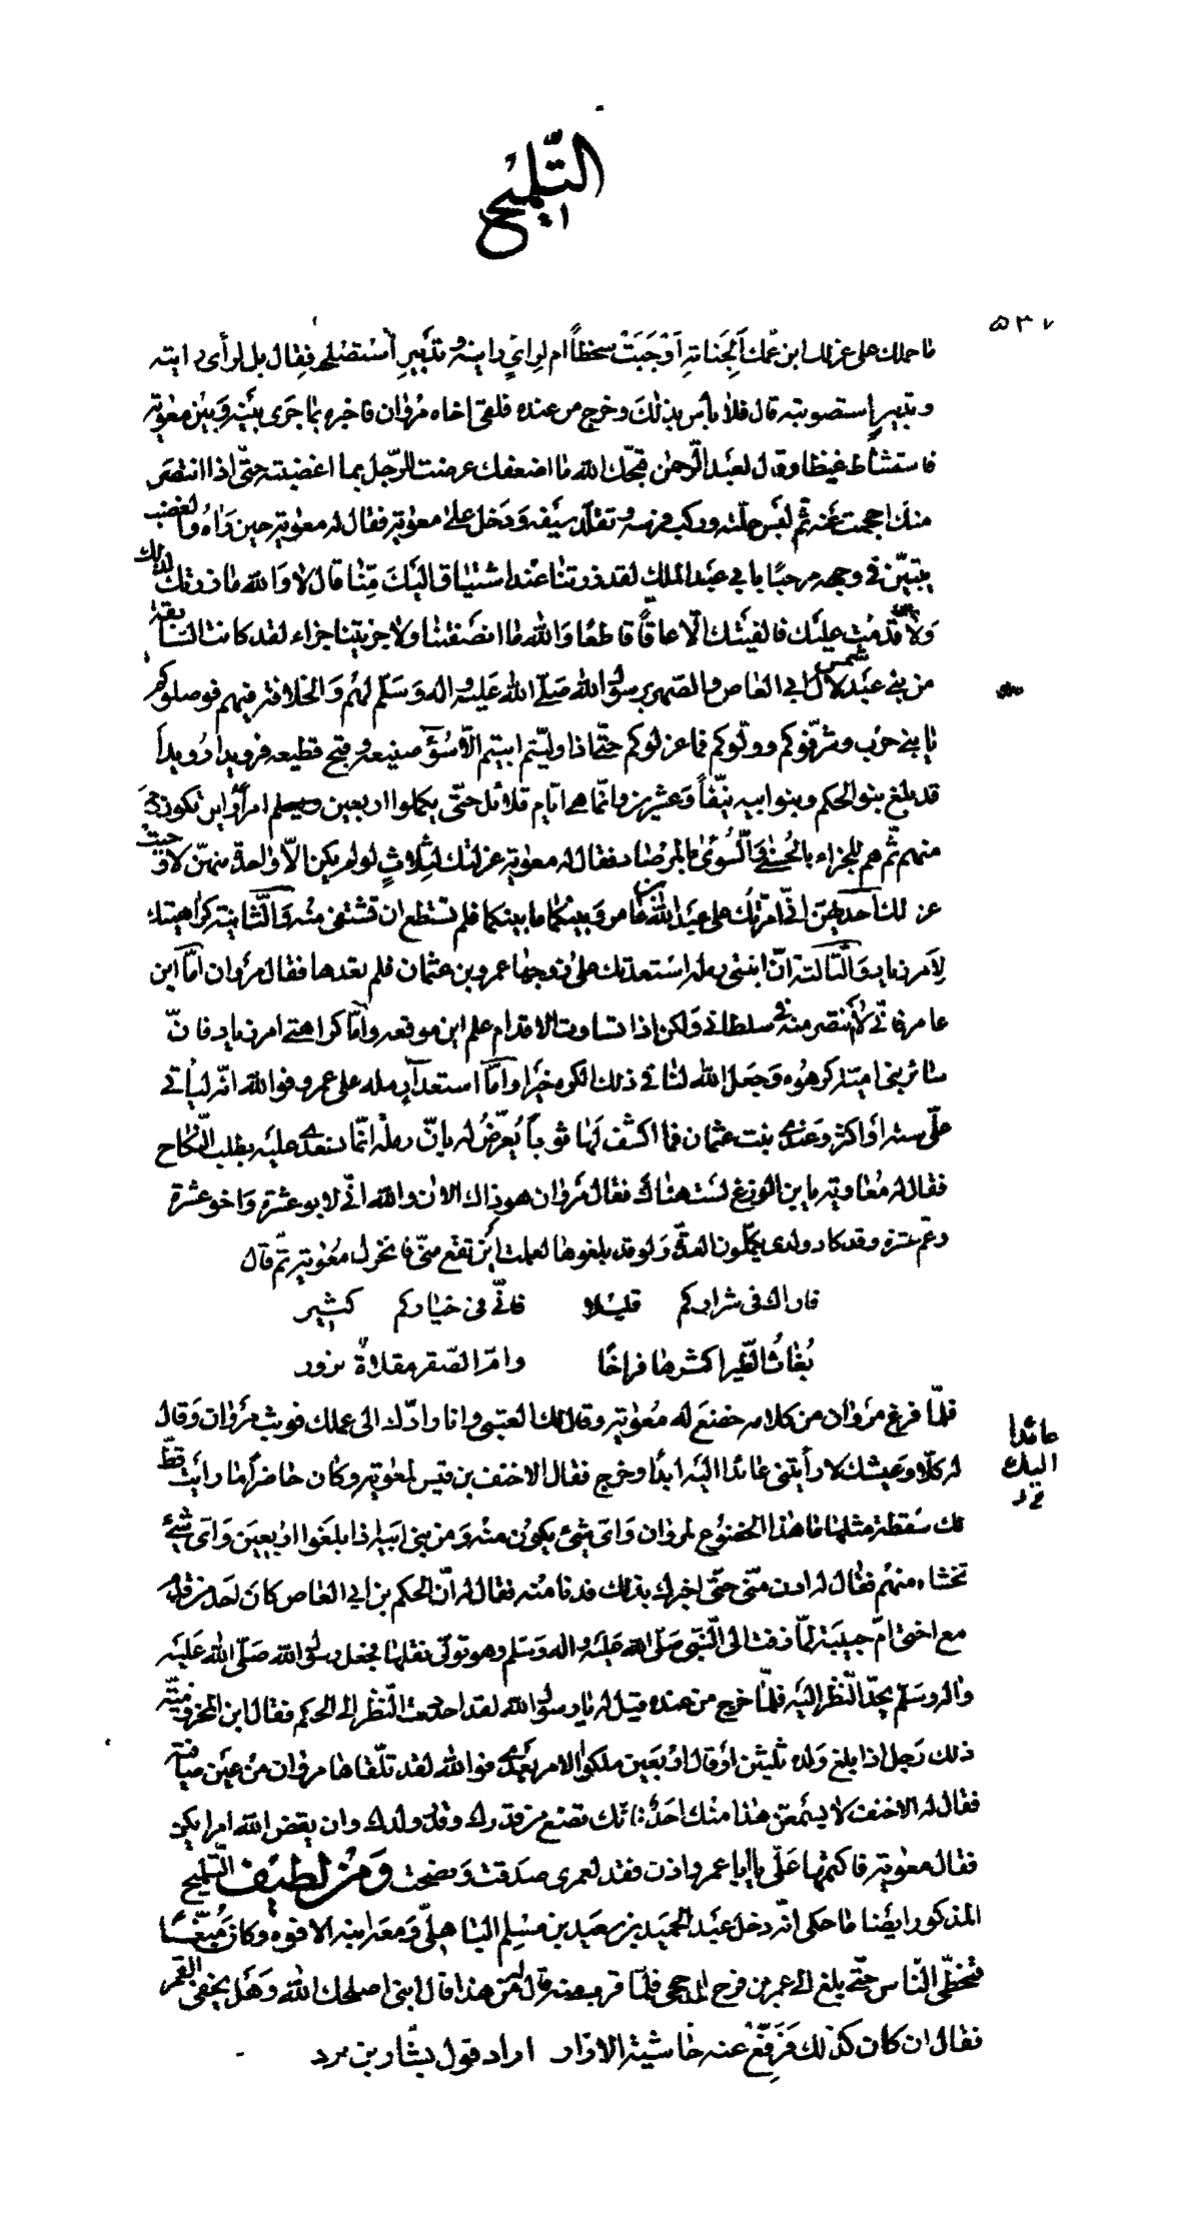 التلميح
٥٣٧
ما حملك على عزلك ابن عمك ألجناية أوجبت سخطاً ام لرايٍ رايته وتدبيرٍ استصلحته فقال بل لرأى رايته
وتدبيرٍ استصوبته قال فلا بأس بذلك وخرج من عنده فلقى اخاه مروان فاخبره بما جرى بينه وبين معوية
فاستشاط غيظا وقال لعبد الرحمن قبّحك الله ما اضعفك عرضت للرّجل بما اغضبته حتّى اذا انتصر
منك احجمت عنه ثم لبس حلّته وركب فرسه وتقلّد سيفه ودخل على معوية فقال له معوية حين راه والغضب
يتبيّن في وجهه مرحبًا بابي عبد الملك لقد زرتنا عند اشتياق اليك منّا قال لا والله ما زرتك لذلك
ولا قدمت عليك فالفيتك الّا عاقًّا قاطعًا والله ما انصفتنا ولا جزيتنا جزاءنا لقد كانت السابقة
من بني عبد شمس لآل ابي العاص والصهر برسول الله صلّى الله عليه واله وسلّم لهم والخلافة فيهم فوصلوكم
يا بني حرب وشرّفوكم وولّوكم فما عزلوكم حتّى اذا وليتم ابيتم الّا سوء صنيعة وقبح قطيعة فرويدا رويداً
قد بلغ بنو الحكم وبنو ابيه نيّفاً وعشرين وانّما هي ايّام قلائل حتّى يكملوا اربعين ويعلم امرأ اين تكون
منهم ثمّ هم للجزاء بالحسنى والسّوئى بالمرصاد فقال له معوية عزلتك لثلاثٍ لو لم يكن الّا واحدة منهنّ لاوجبت
عزلك احديهنّ انّي امّرتك على عبد الله بن عامر وبينكما ما بينكما فلم تستطع ان تشتفى منه والثّانية كراهيتك
لامر زياد والثّالثة انّ ابنتى رملة استعدتك على زوجها عمرو بن عثمان فلم تعدها فقال مروان امّا ابن
عامر فانّي لا أنتصر منه في سلطاني ولكن اذا تساوت الاقدام علم اين موقعه وامّا كراهتى امر زياد فانّ
سائر بنى اميّة كرهوه وجعل الله لنا في ذلك الكره خيرا وامّا استعداء رملة على عمرو فوالله انّه ليأتى
علىّ سنه أو اكثر وعندى بنت عثمان فما اكشف لها ثوباً يعرّض له بانّ رملة انّما تستعدى عليه بطلب النّكاح
فقال له معاوية يا بن الوزغ لست هناك فقال مروان هو ذاك الان والله انّي لابو عشرة واخو عشرة
وعمّ عشرة وقد كاد ولدى يكملون العدّة ولو قد بلغوها لعلمت أين تقع منّى فانخزل معوية ثمّ قال
فان اك فى شراركم قليلا فانّي فى خياركم كثير
بغاث الطّير اكثرها فراخًا وام الصّقر مقلاة نزور
فلمّا فرغ مروان من كلامه خضع له معوية وقال لك العتبى وانا رادّك الى عملك فوثب مروان وقال
له كلّا وعيشك لا رأيتنى عائدا اليه ابدًا وخرج فقال الاحنف بن قيس لمعوية وكان حاضراً ما رأيت قطّ
عائدا
اليك
لك سقطة مثلها ما هذا الخضوع لمروان واىّ شئ يكون منه ومن بنى ابيه اذا بلغوا اربعين واىّ شئ
تخشاه منهم فقال له ادن منّى حتّى اخبرك بذلك فدنا منه فقال له انّ الحكم بن ابي العاص كان احد من قدم
مع اختى امّ حبيبة لمّا زفت الى النّبى صلّى الله عليه واله وسلّم وهو تولّى نقلها فجعل رسول الله صلّى الله عليه
واله وسلم يحدّ النّظر اليه فلمّا خرج من عنده قيل له يا رسول الله لقد احددت النّظر الى الحكم فقال ابن المخزوميّة
ذلك رجل اذا بلغ ولده ثلثين أو قال اربعين ملكوا الامر بعدى فوالله لقد تلقّاها مروان من عين صافية
فقال له الاحنف لا يسمعنّ هذا منك احد فانّك تضع من قدرك وقدر ولدك وان يقض الله امرا يكن
فقال معوية فاكتمها علىّ يا ابا عمر واذن فقد لعمرى صدقت ونصحت ومن لطيف التّلميح
المذكور ايضًا ما حكى انّه دخل عبد الحميد بن سعيد بن مسلم الباهلىّ ومعه ابنه الافوه وكان مبغّضًا
فتخطّى النّاس حتّى بلغ الى عمر بن فرج الرخجى فلمّا قرب منه قال له من هذا قال ابنى اصلحك الله وهل يخفى القمر
فقال ان كان كذلك فرفّع عنه حاشية الازار اراد قول بشّار بن برد